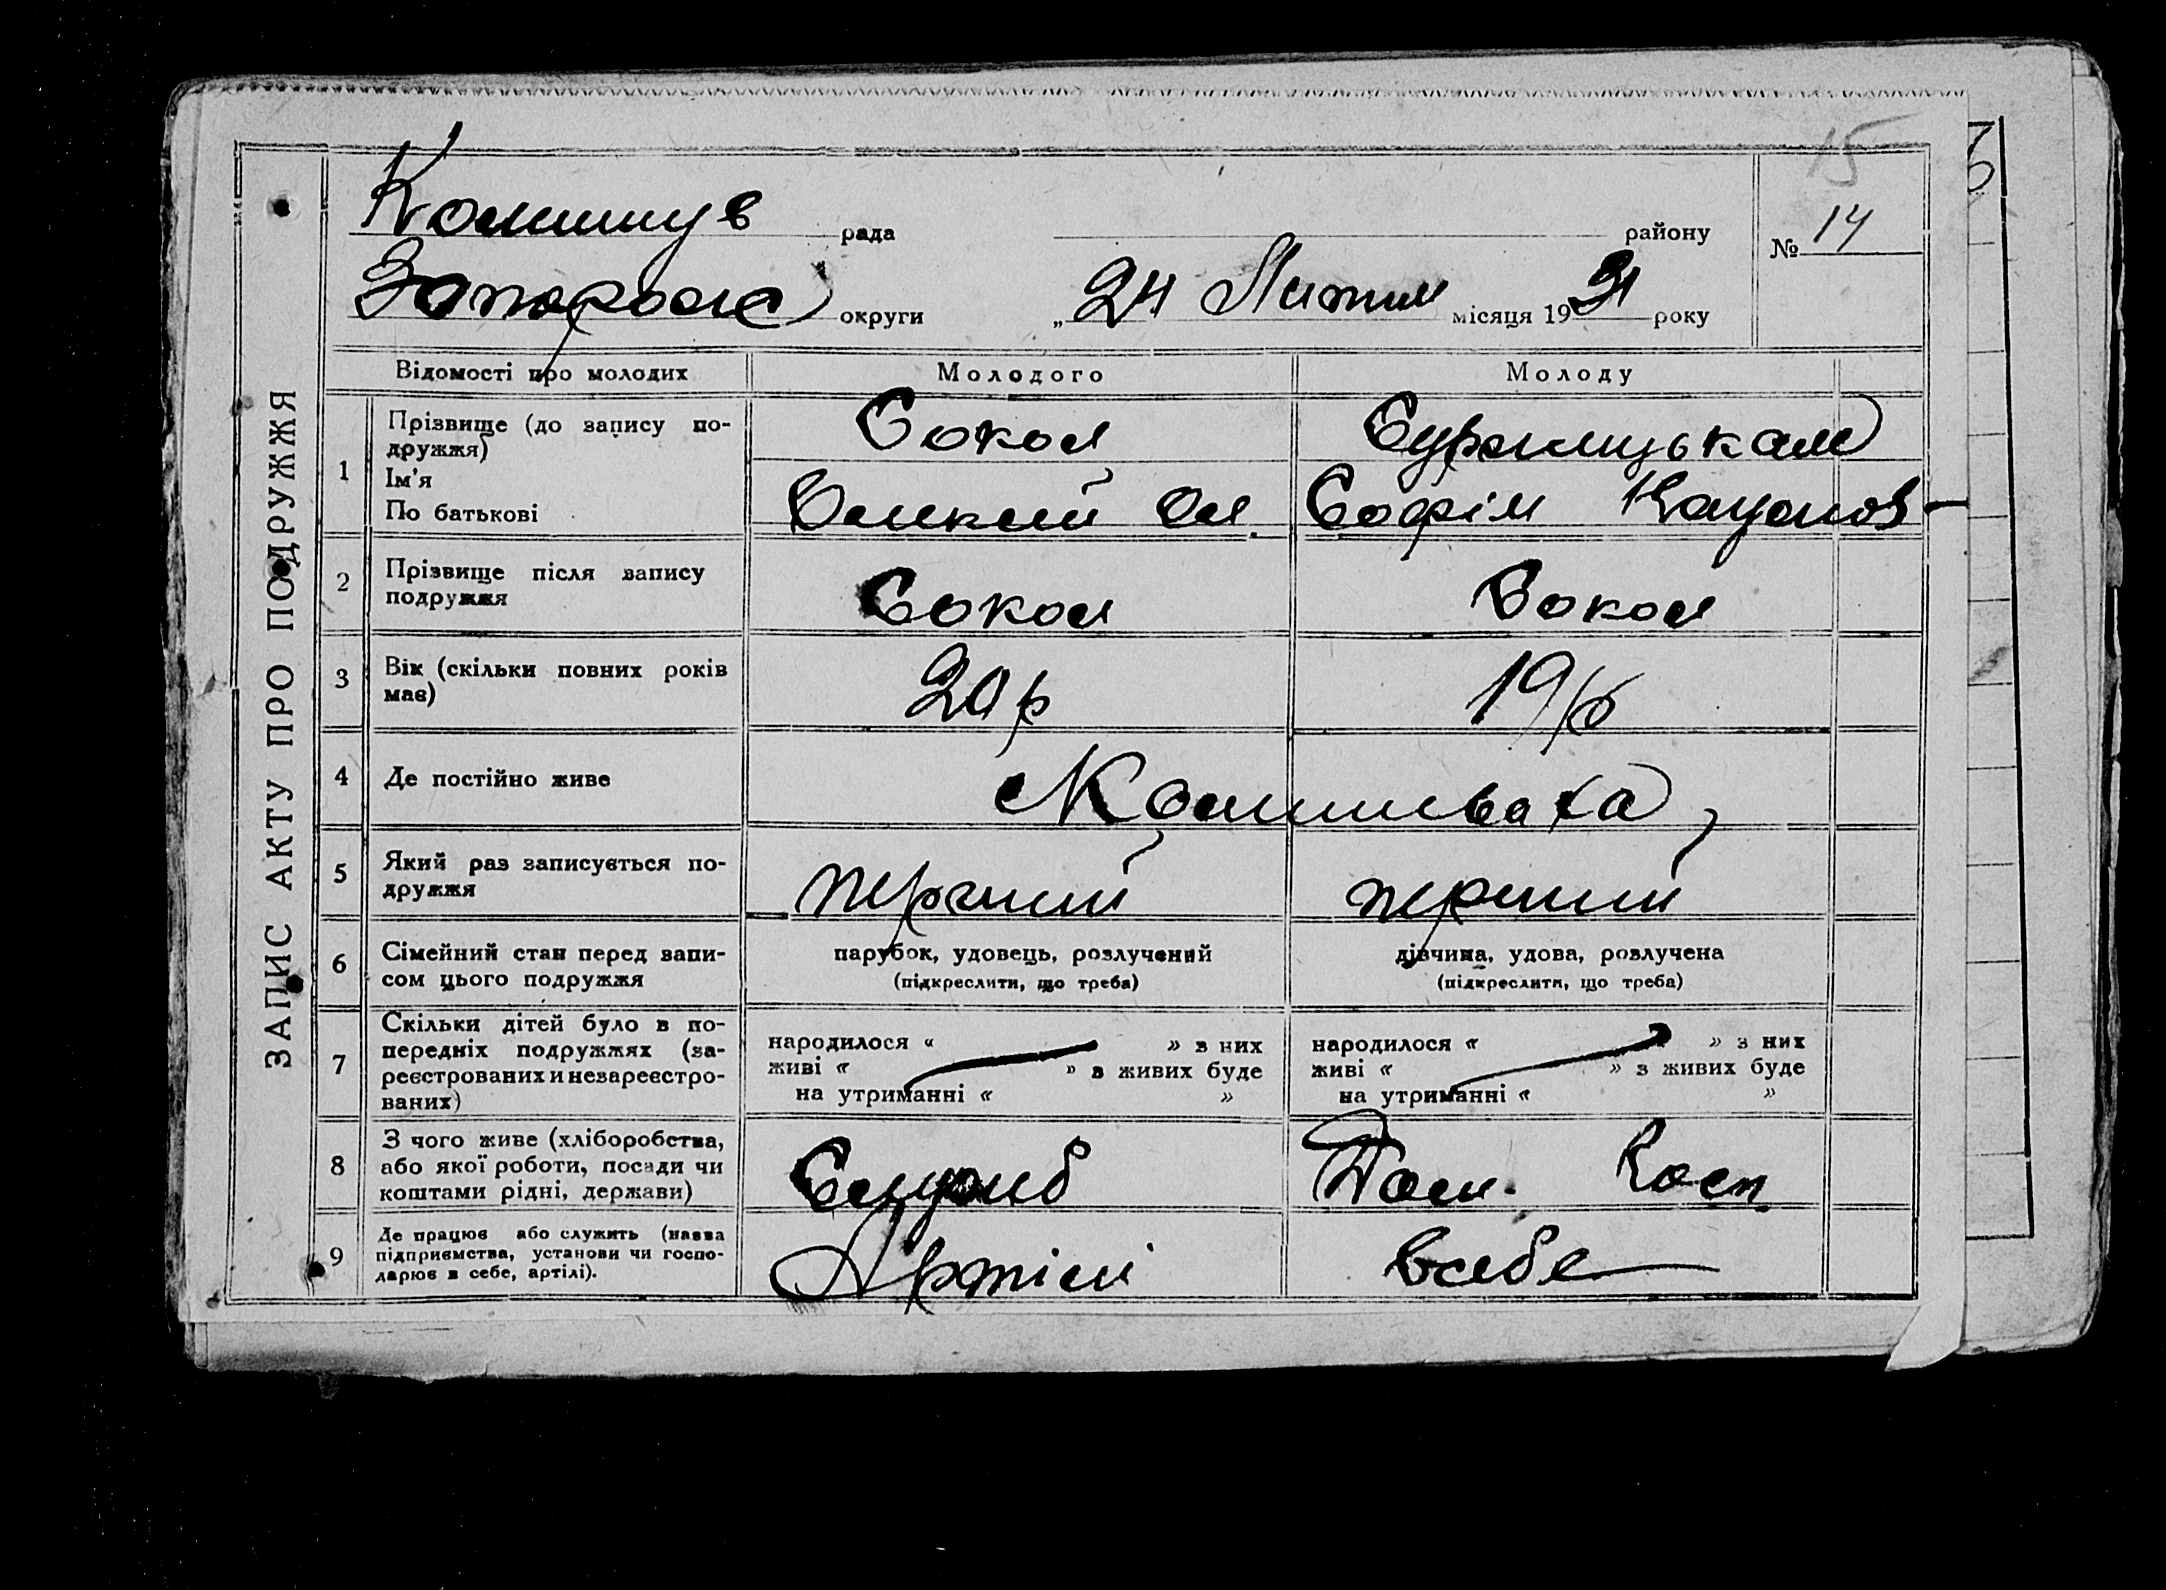 ЗАПИС АКТУ ПРО ПОДРУЖЖЯ
15
Комишув рада району № 14
Запорож округи „ 24 Лютий місяця 1931 року
Відомості про молодих Молодого Молоду
1 Прізвище (до запису подружжя) Сокол
Ім'я
По батькові Софія
2 Прізвище після запису подружжя Сокол Сокол
3 Вік (скільки повних років має) 20 р 19 р
4 Де постійно живе Комишеваха
5 Який раз записується подружжя перший перший
6 Сімейний стан перед записом цього подружжя парубок, удовець, розлучений дівчина, удова, розлучена
(підкреслити, що треба) (підкреслити, що треба)
7 Скільки дітей було в попередніх подружжях (зареєстрованих и незареєстрованих) народилося « » з них народилося « » з них
живі « » з живих буде живі « » з живих буде
на утриманні « » на утриманні « »
8 З чого живе (хліборобства, або якої роботи, посади чи коштами рідні, держави)
9 Де працює або служить (назва підприємства, установи чи господарює в себе, артілі). Артілі вसебе